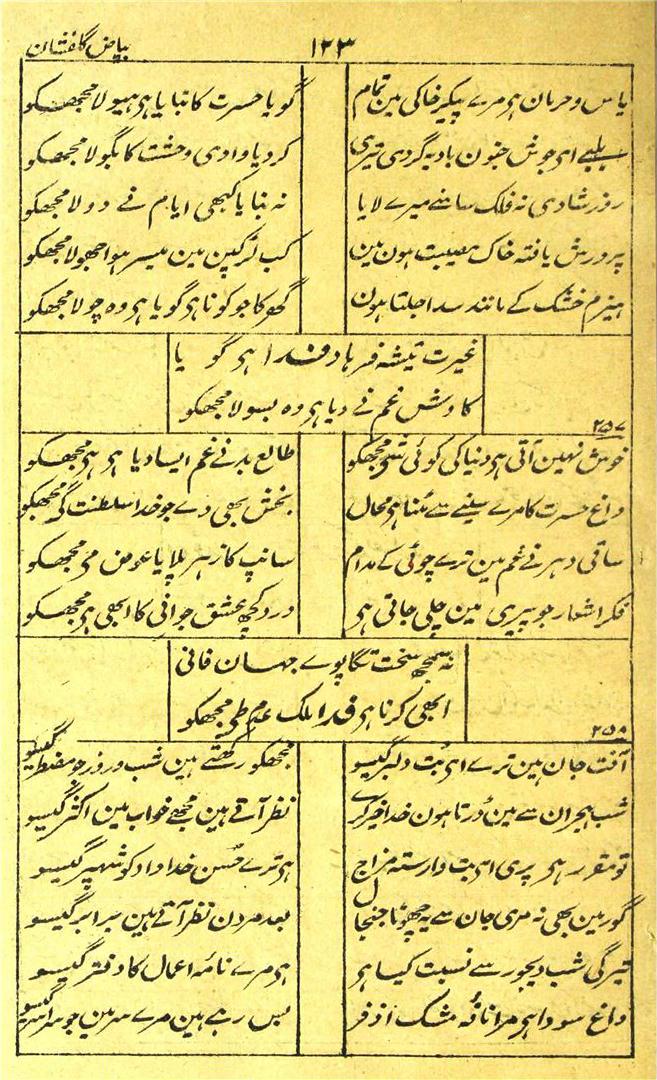 بیاض گلفشان
۱۲۳
یاس و حرمان ہی مرے پیکر خاکی مین تمام گویا حسرت کا بنایا ہی ہیولا مجھکو
بلبے ای جوش جنون بادیہ گردی تیری کر دیا وادی وحشت کا بگولا مجھکو
روز شادی نہ فلک سامنے میرے لایا نہ بنایا کبھی ایام نے دولا مجھکو
پرورش یافتہ خاک مصیبت ہون مین کب لڑکپن مین میسر ہوا جھولا مجھکو
ہیزم خشک کے مانند سدا جلتا ہون گھر کا جو کونا ہی گویا ہی وہ چولا مجھکو
غیرت تیشہ فرہاد فدا ہی گویا
کاوش غم نے دیا ہی وہ بسولا مجھکو
۲۵۷
خوش نہین آتی ہی دنیا کی کوئی شی مجھکو طالع بد نے غم ایسا دیا ہی ہی مجھکو
داغ حسرت کا مرے سینے سے مٹنا ہی محال بخش بھی دے جو خدا سلطنت کی مجھکو
ساقی دہر نے غم مین ترے چوٹی کے مدام سانپ کا زہر پلایا عوض می مجھکو
فکر اشعار جو پیری مین چلی جاتی ہی درد کچھ عشق جوانی کا ابھی ہی مجھکو
نہ سمجھ سخت تگاپوے جہان فانی
ابھی کرنا ہی فدا ملک عدم طی مجھکو
۲۵۸
آفت جان ہین ترے ای بت دلبر گیسو مجھکو رکھتے ہین شب و روز جو مضطر گیسو
شب ہجران سے مین ڈرتا ہون خدا خیر کرے نظر آتے ہین مجھے خواب مین اکثر گیسو
تو مقرر ہی پری ای بت وارستہ مزاج ہی ترے حسن خداداد کو شہپر گیسو
گور مین بھی نہ مری جان سے یہ چھوٹا جنجال بعد مردن نظر آتے ہین سراسر گیسو
تیرگی شب دیجور سے نسبت کیسا ہی ہی مرے نامہ اعمال کا دفتر گیسو
داغ سودا ہی مرا نافہ مشک اذفر بس رہے ہین مرے سر مین جو سراسر گیسو